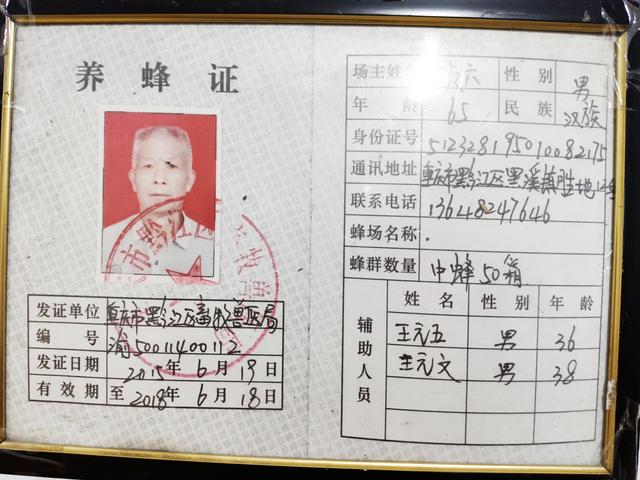 养蜂证
发证单位 重庆市黔江区畜牧兽医局
编号 渝50011400112
发证日期 2015年6月19日
有效期 至2018年6月18日
场主姓名 六 性别 男
年龄 65 民族 汉族
身份证号 512328195010082175
通讯地址 重庆市黔江区黑溪镇胜地
联系电话 13648247646
蜂场名称
蜂群数量 中蜂50箱
辅助人员
姓名 性别 年龄
王元五 男 36
王元文 男 38